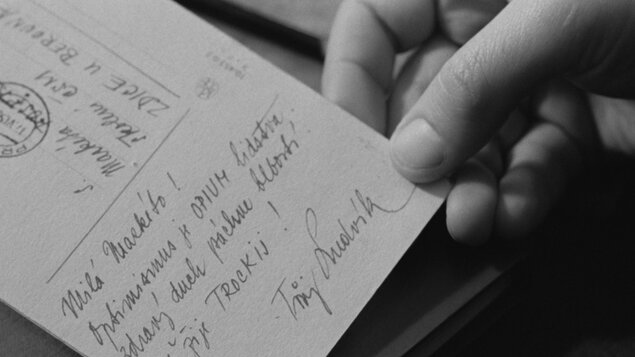 Milá Markéto!
Optimismus je OPIUM lidstva.
zdravý duch páchne blbostí.
žije TROCKIJ!
Tvůj Ludvík
S. Markéta
školení ČSM
ZDICE u BEROUNA